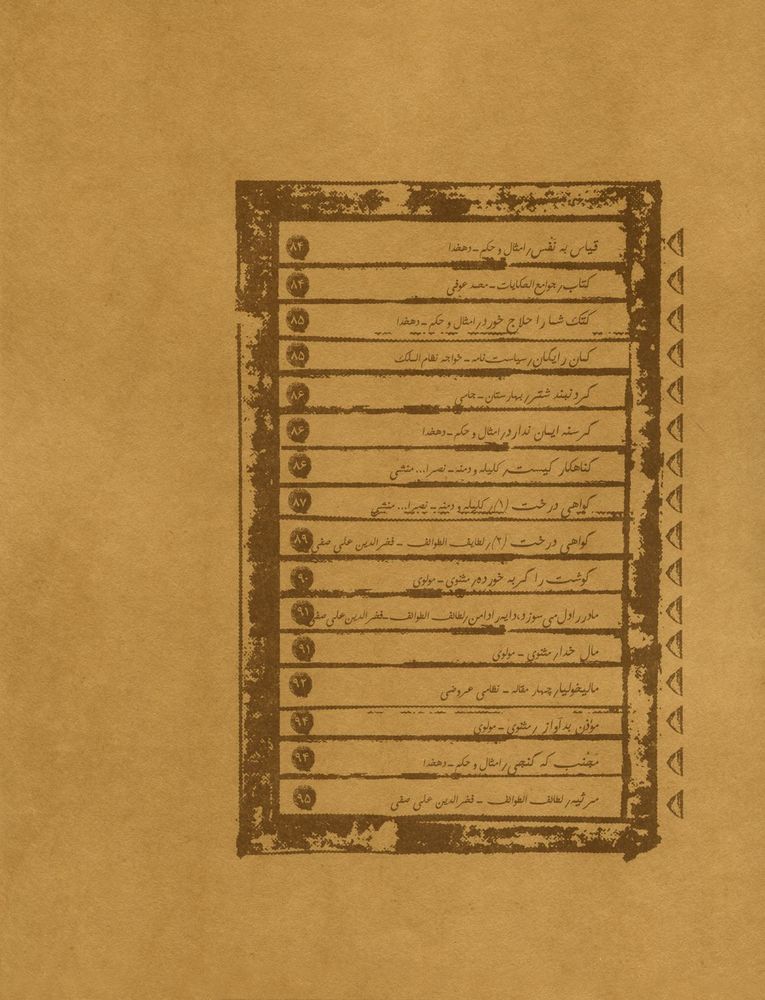 قیاس به نفس/ امثال و حکم ـ دهخدا ۸۴
کتاب/ جوامع الحکایات ـ محمد عوفی ۸۴
کتک شما را حلاج خورد/ امثال و حکم ـ دهخدا ۸۵
کمان رایگان/ سیاست‌نامه ـ خواجه نظام الملک ۸۵
گردنبند شتر/ بهارستان ـ جامی ۸۶
گرسنه ایمان ندارد/ امثال و حکم ـ دهخدا ۸۶
گناهکار کیست/ کلیله و دمنه ـ نصرا... منشی ۸۶
گواهی درخت (۱)/ کلیله و دمنه ـ نصرا... منشی ۸۷
گواهی درخت (۲)/ لطایف الطوائف ـ فخرالدین علی صفی ۸۹
گوشت را گربه خورده/ مثنوی ـ مولوی ۹۰
مادر را دل می سوزد، دایه را دامن/ لطائف الطوائف ـ فخرالدین علی صفی ۹۱
مال خدا/ مثنوی ـ مولوی ۹۱
مالیخولیا/ چهار مقاله ـ نظامی عروضی ۹۲
مؤذن بدآواز / مثنوی ـ مولوی ۹۴
مجنب که گنجی/ امثال و حکم ـ دهخدا ۹۴
مرثیه/ لطائف الطوائف ـ فخرالدین علی صفی ۹۵